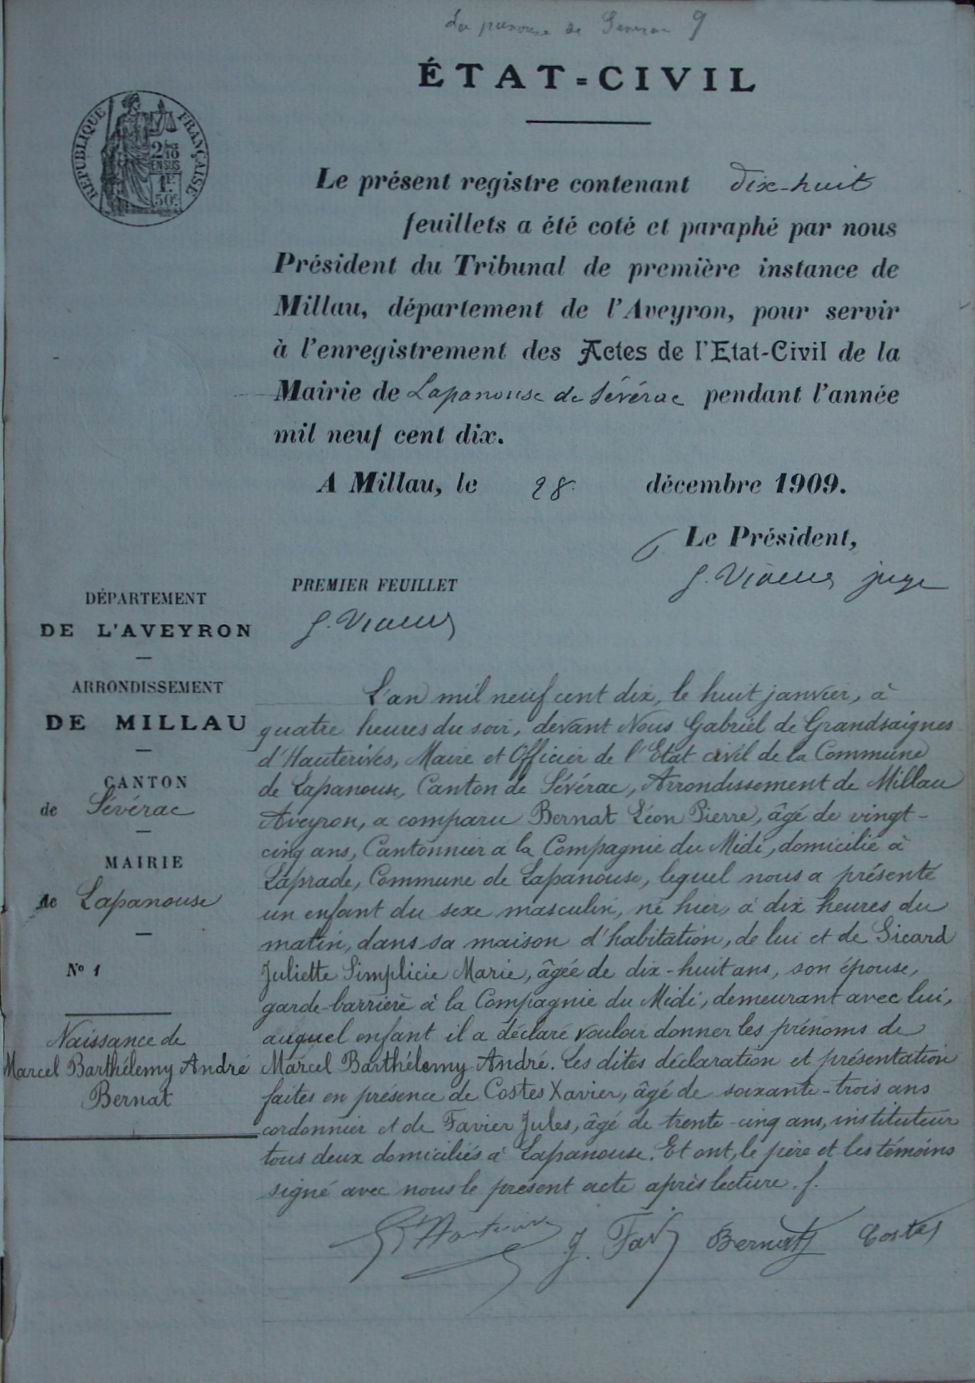 La panouse de Séverac 9
ÉTAT=CIVIL
RÉPUBLIQUE FRANÇAISE
2/10
EN SUS
1F
50c
Le présent registre contenant dix-huit
feuillets a été coté et paraphé par nous
Président du Tribunal de première instance de
Millau, département de l'Aveyron, pour servir
à l'enregistrement des Actes de l'Etat-Civil de la
Mairie de Lapanouse de Sévérac pendant l'année
mil neuf cent dix.
A Millau, le 28 décembre 1909.
Le Président,
juge
PREMIER FEUILLET
DÉPARTEMENT
DE L'AVEYRON
ARRONDISSEMENT
DE MILLAU
CANTON
de Sévérac
MAIRIE
de Lapanouse
No 1
Naissance de
Marcel Barthélemy André
Bernat
L'an mil neuf cent dix, le huit janvier, à
quatre heures du soir, devant Nous Gabriel de Grandsaignes
d'Hauterives, Maire et Officier de l'Etat civil de la Commune
de Lapanouse, Canton de Sévérac, Arrondissement de Millau
Aveyron, a comparu Bernat Léon Pierre, âgé de vingt-
cinq ans, Cantonnier à la Compagnie du Midi, domicilié à
Laprade, Commune de Lapanouse, lequel nous a présenté
un enfant du sexe masculin, né hier, à dix heures du
matin, dans sa maison d'habitation, de lui et de Sicard
Juliette Simplicie Marie, âgée de dix-huit ans, son épouse,
garde-barrière à la Compagnie du Midi, demeurant avec lui,
auquel enfant il a déclaré vouloir donner les prénoms de
Marcel Barthélemy André. Les dites déclaration et présentation
faites en présence de Costes Xavier, âgé de soixante-trois ans
cordonnier et de Favier Jules, âgé de trente-cinq ans, instituteur
tous deux domiciliés à Lapanouse. Et ont, le père et les témoins
signé avec nous le présent acte après lecture. f.
J. Fav Bernat Costes